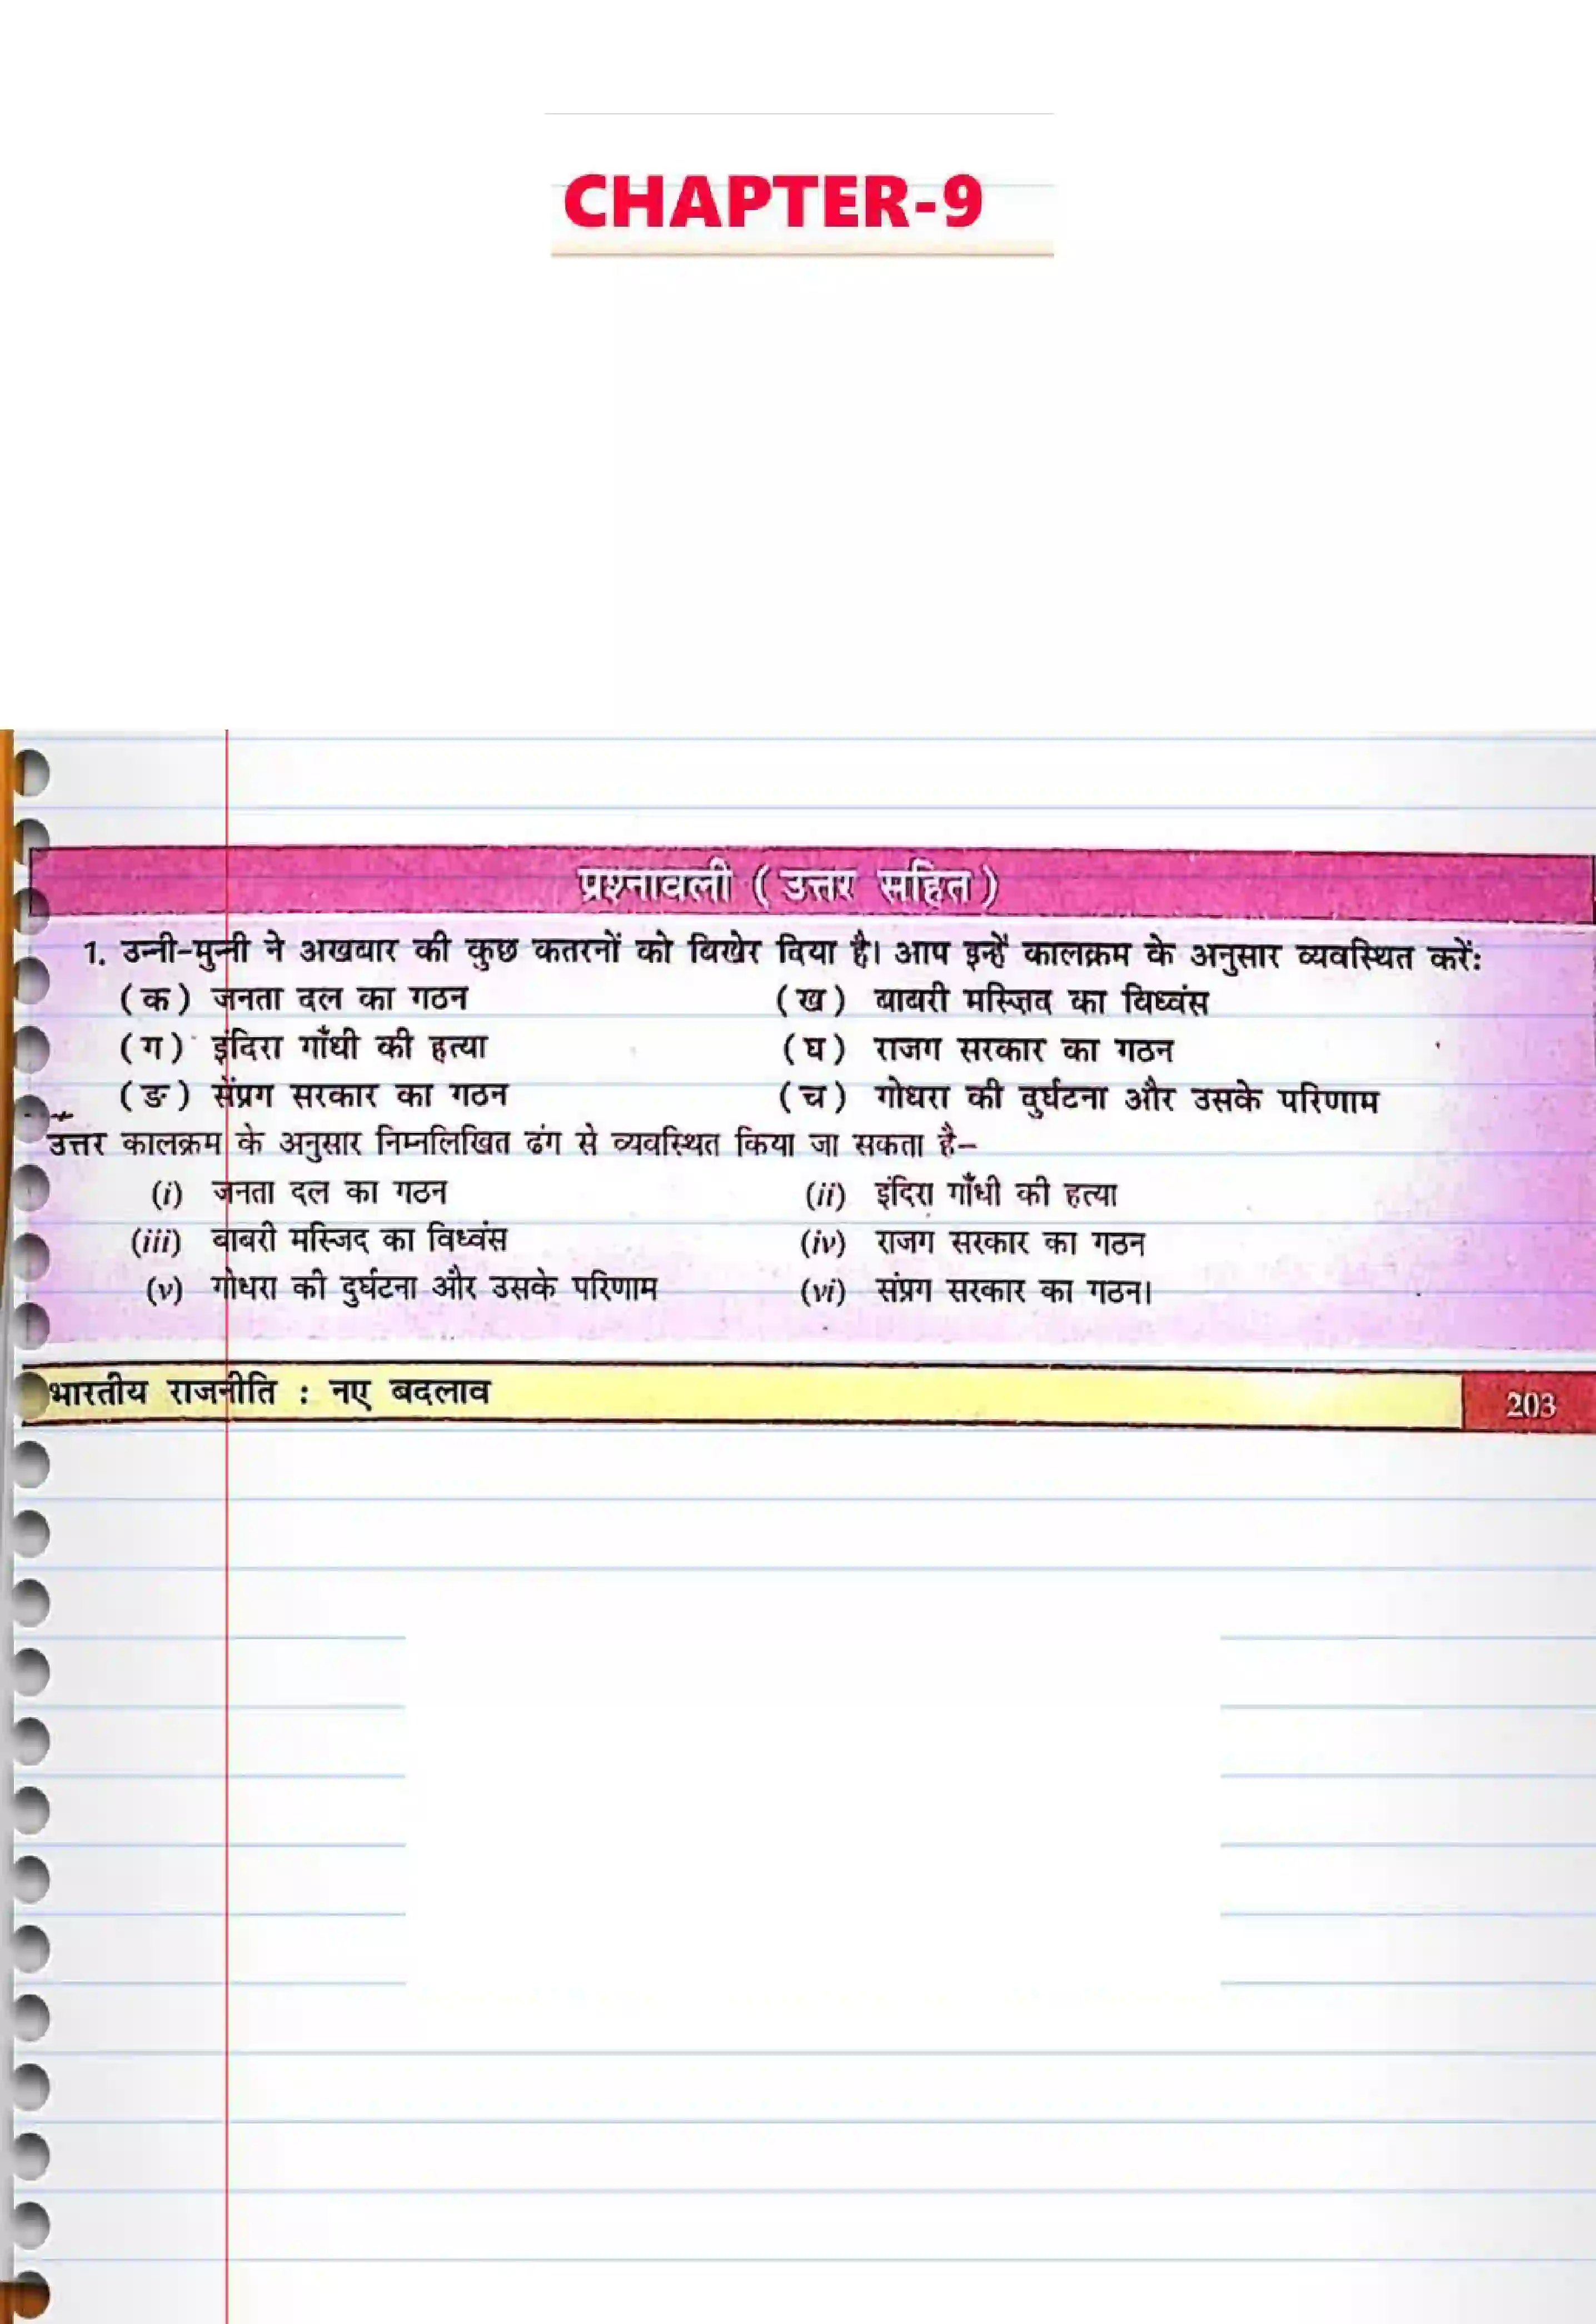 CHAPTER-9
प्रश्नावली ( उत्तर सहित )
1. उन्नी-मुन्नी ने अखबार की कुछ कतरनों को बिखेर दिया है। आप इन्हें कालक्रम के अनुसार व्यवस्थित करें:
( क ) जनता दल का गठन ( ख ) बाबरी मस्जिद का विध्वंस
( ग ) इंदिरा गाँधी की हत्या ( घ ) राजग सरकार का गठन
( ङ ) संप्रग सरकार का गठन ( च ) गोधरा की दुर्घटना और उसके परिणाम
उत्तर कालक्रम के अनुसार निम्नलिखित ढंग से व्यवस्थित किया जा सकता है–
(i) जनता दल का गठन (ii) इंदिरा गाँधी की हत्या
(iii) बाबरी मस्जिद का विध्वंस (iv) राजग सरकार का गठन
(v) गोधरा की दुर्घटना और उसके परिणाम (vi) संप्रग सरकार का गठन।
भारतीय राजनीति : नए बदलाव 203